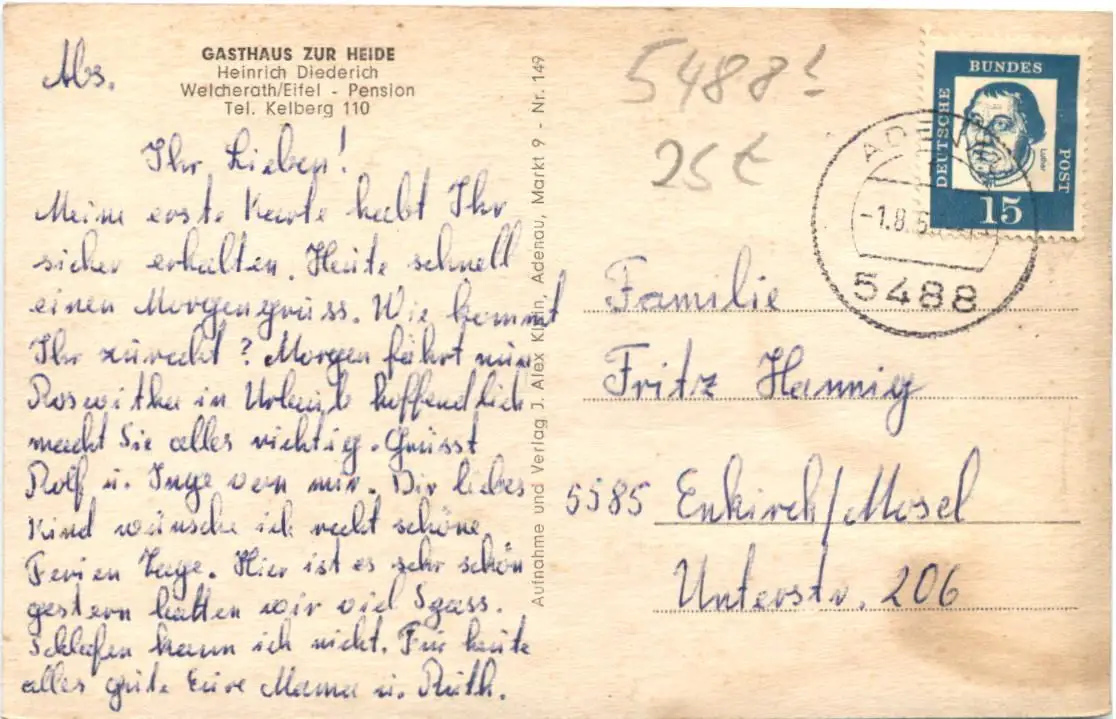 Abs.
GASTHAUS ZUR HEIDE
Heinrich Diederich
Welcherath/Eifel - Pension
Tel. Kelberg 110
Ihr Lieben!
Meine erste Karte habt Ihr
sicher erhalten. Heute schnell
einen Morgengruss. Wie kommt
Ihr zurecht? Morgen fährt nun
Roswitha in Urlaub hoffendlich
macht Sie alles richtig. Grüsst
Rolf u. Inge von mir. Dir liebes
Kind wünsche ich recht schöne
Ferien Tage. Hier ist es sehr schön
gestern hatten wir viel Spass.
Schlafen kann ich nicht. Für heute
alles gute Eure Mama u. Ruth.
Aufnahme und Verlag J. Alex Klein, Adenau, Markt 9 - Nr. 149
5488!
25 €
DEUTSCHE
BUNDES
POST
Luther
15
-1.8.6
5488
Familie
Fritz Hannig
5585 Enkirch/Mosel
Unterstr. 206